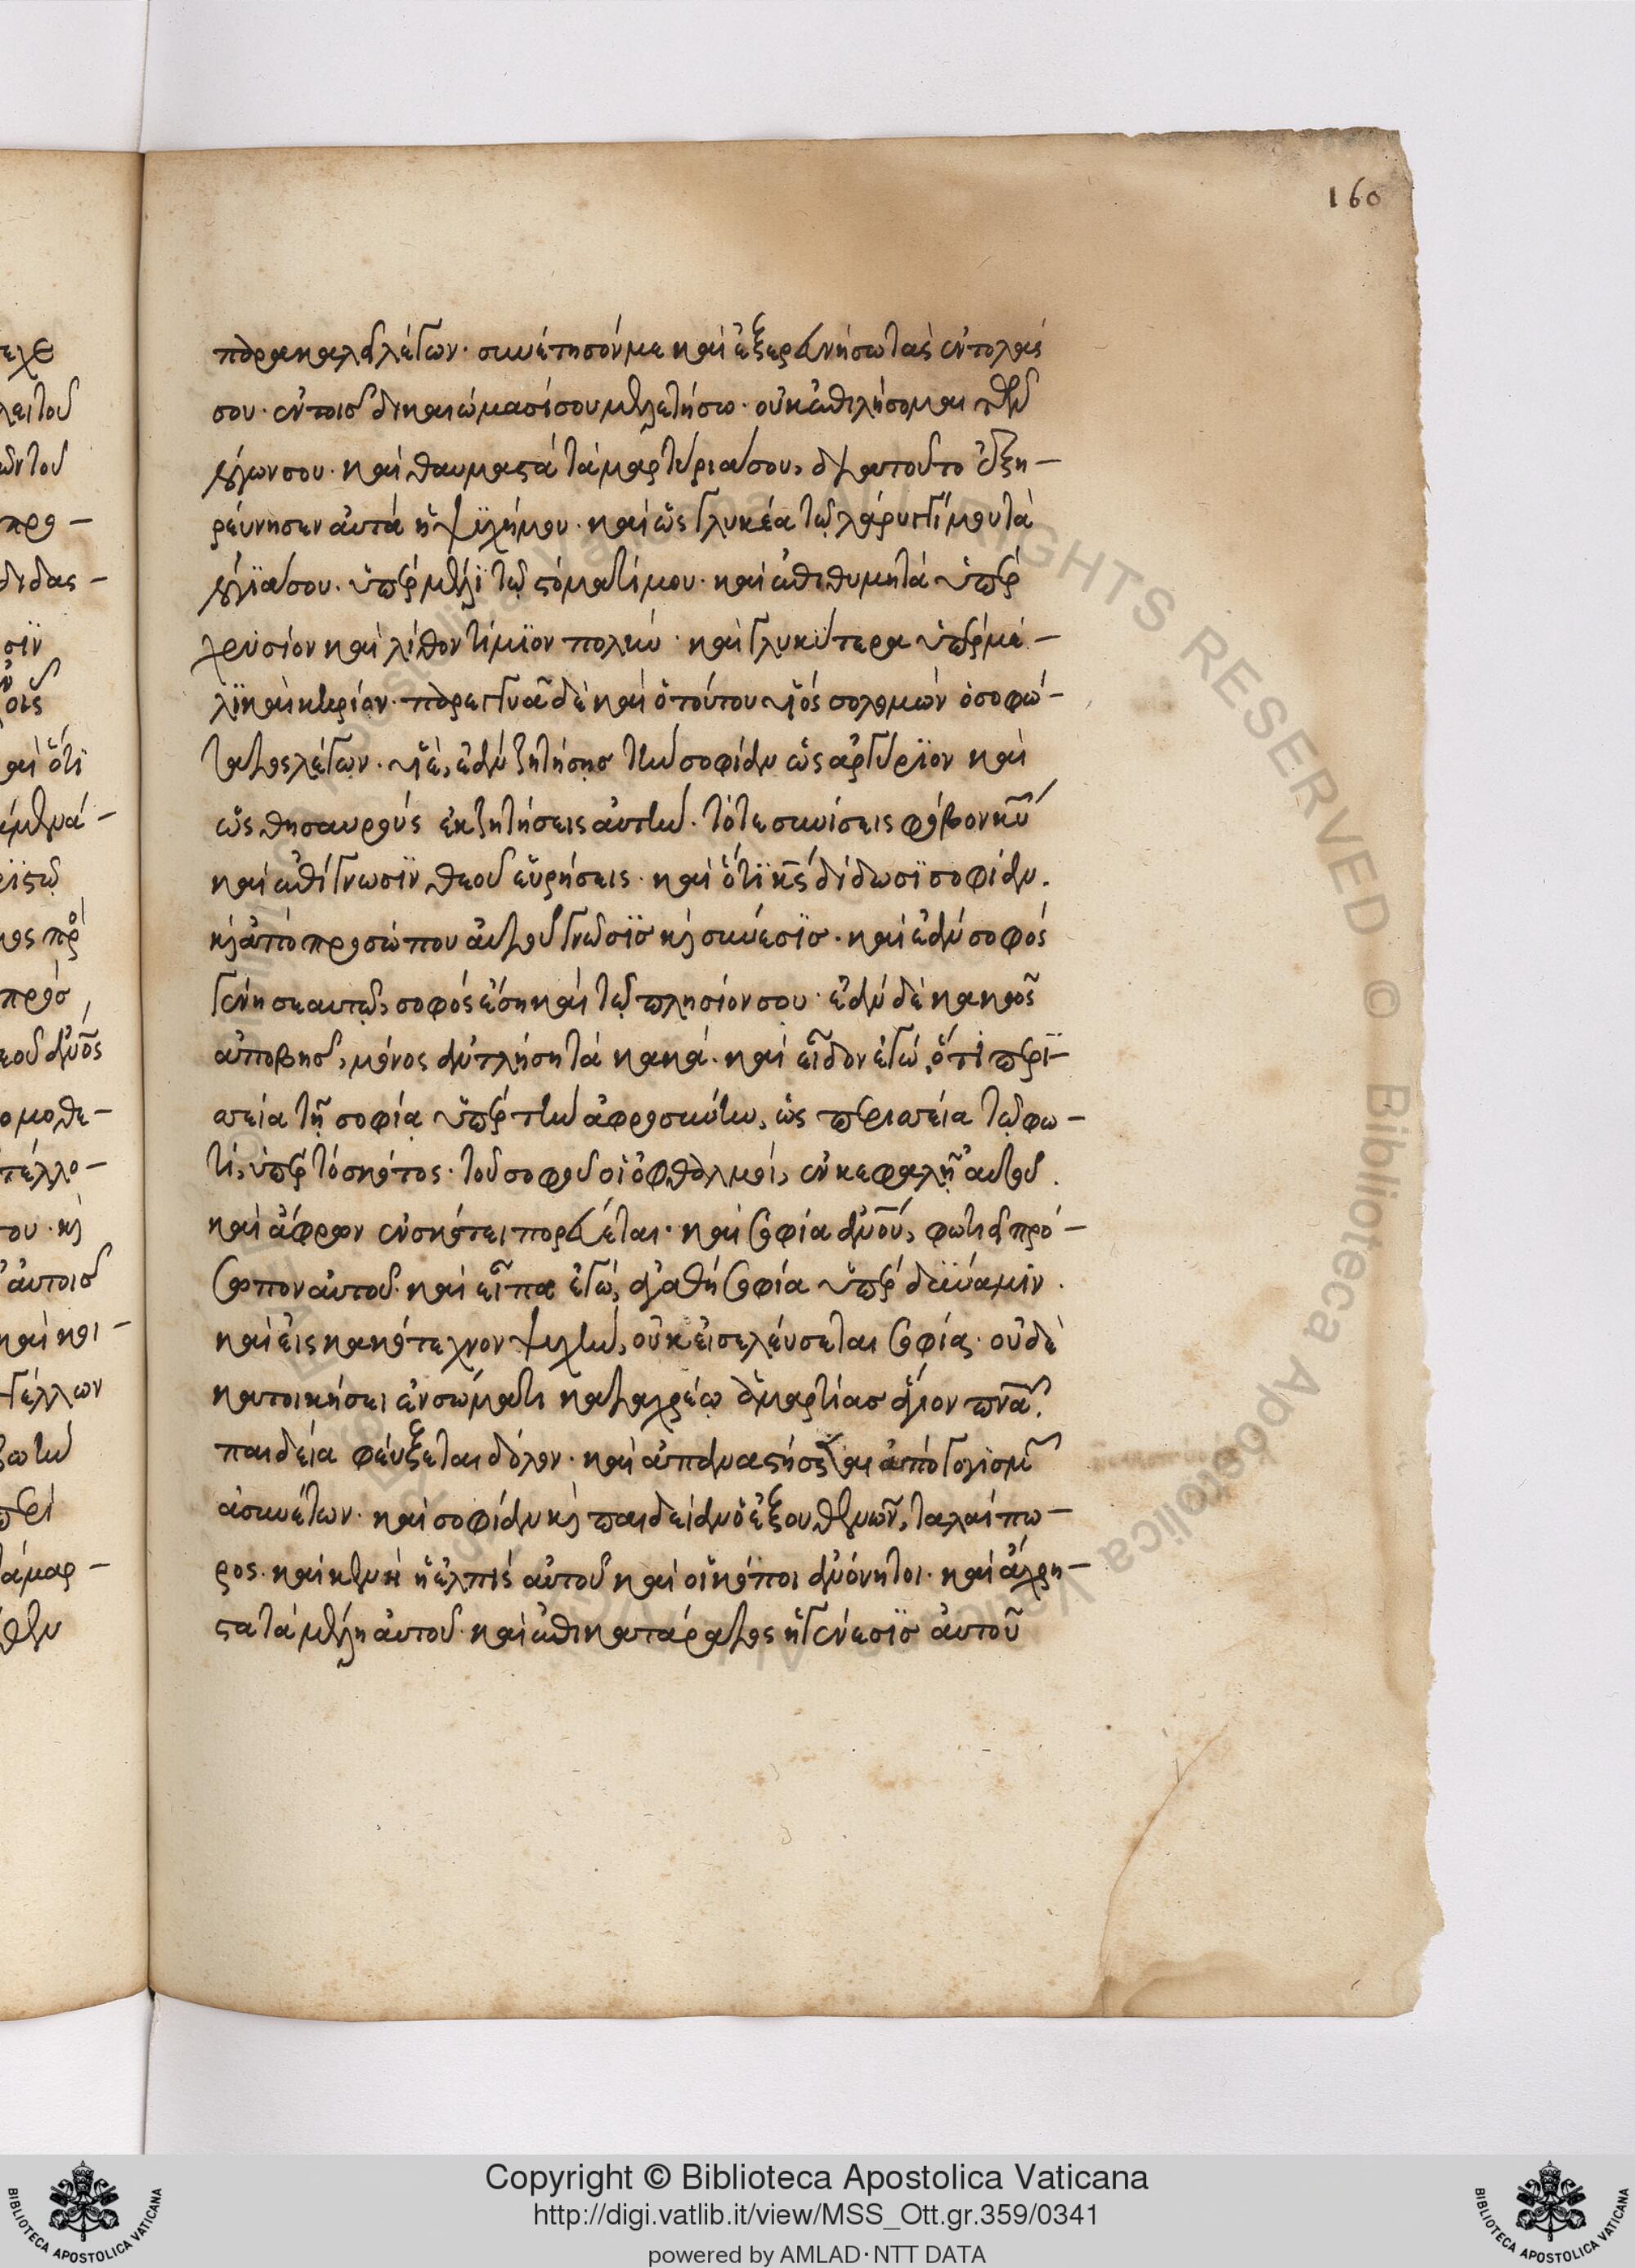 160
παρακαλεῖ λέγων· συνέτησόν με καὶ ἐξερευνήσω τὰς ἐντολάς
σου· ἐν τοῖς δικαιώμασί σου μελετήσω· οὐκ ἐπιλήσομαι τῶν
λόγων σου· καὶ θαυμαστὰ τὰ μαρτύρια σου, διατοῦτο ἐξη-
ρεύνησεν αὐτὰ ἡ ψυχή μου· καὶ ὡς γλυκέα τῷ λάρυγγί μου τὰ
λόγϊα σου. ὑπὲρ μέλϊ τῷ στόματί μου· καὶ ἐπιθυμητὰ ὑπὲρ
χρυσίον καὶ λίθον τίμϊον πολύν· καὶ γλυκύτερα ὑπὲρ μέ-
λϊ καὶ κηρίον· παρεγγυᾷ δὲ καὶ ὁ τούτου υἱός σολομών ὁ σοφώ-
τατος λέγων· υἱέ, ἐὰν ζητήσῃς τὴν σοφίαν ὡς ἀργύρϊον καὶ
ὡς θησαυρούς ἐκζητήσεις αὐτήν. τότε συνίσεις φόβον κυ
καὶ ἐπίγνωσϊν θεοῦ εὑρήσεις· καὶ ὅτϊ κς δίδωσϊ σοφίαν.
κὶ ἀπὸ προσώπου αὐτοῦ γνῶσϊς κὶ σύνεσϊς· καὶ ἐὰν σοφός
γένῃ σεαυτῷ, σοφός ἔσῃ καὶ τῷ πλησίον σου· ἐὰν δὲ κακὸς
ἀποβῇς, μόνος ἀντλήσῃ τὰ κακά. καὶ εἶδον ἐγώ, ὅτι περϊ-
σεία τῇ σοφίᾳ ὑπὲρ τὴν ἀφροσύνην, ὡς περισεία τῷ φω-
τί, ὑπὲρ τὸ σκότος· τοῦ σοφοῦ οἱ ὀφθαλμοί, ἐν κεφαλῇ αὐτοῦ.
καὶ ἄφρων ἐν σκότει πορεύεται· καὶ σοφία ἀνου, φωτιεῖ πρό-
σωπον αὐτοῦ· καὶ εἶπα ἐγώ, ἀγαθή σοφία ὑπὲρ δύναμιν.
καὶ εἰς κακότεχνον ψυχήν, οὐκ εἰσελεύσεται σοφία· οὐδὲ
κατοικήσει ἐν σώματι καταχρέῳ ἁμαρτίας ἅγιον πνα.
παιδεία φεύξεται δόλον· καὶ ἀπαναστήσεται ἀπὸ λογισμ
ἀσυνέτων· καὶ σοφίαν κὶ παιδείαν ὁ ἐξουθενῶν, ταλαίπω-
ρος· καὶ κενὴ ἡ ἐλπίς αὐτοῦ καὶ οἱ κόποι ἀνόνητοι· καὶ ἄχρη-
στα τὰ μέλη αὐτοῦ· καὶ ἐπικατάρατος ἡ γένεσϊς αὐτοῦ
Copyright © Biblioteca Apostolica Vaticana
http://digi.vatlib.it/view/MSS_Ott.gr.359/0341
powered by AMLAD·NTT DATA